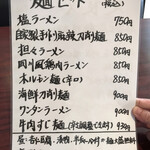 麺セット (税込)
塩ラーメン 750円
自家製手打ち麻辣刀削麺 850円
担々ラーメン 850円
四川風鶏肉ラーメン 850円
ホルモン麺(辛口) 850円
海鮮刀削麺 900円
ワンタンラーメン 900円
牛肉すじ麺(辛さ調整できます) 930円